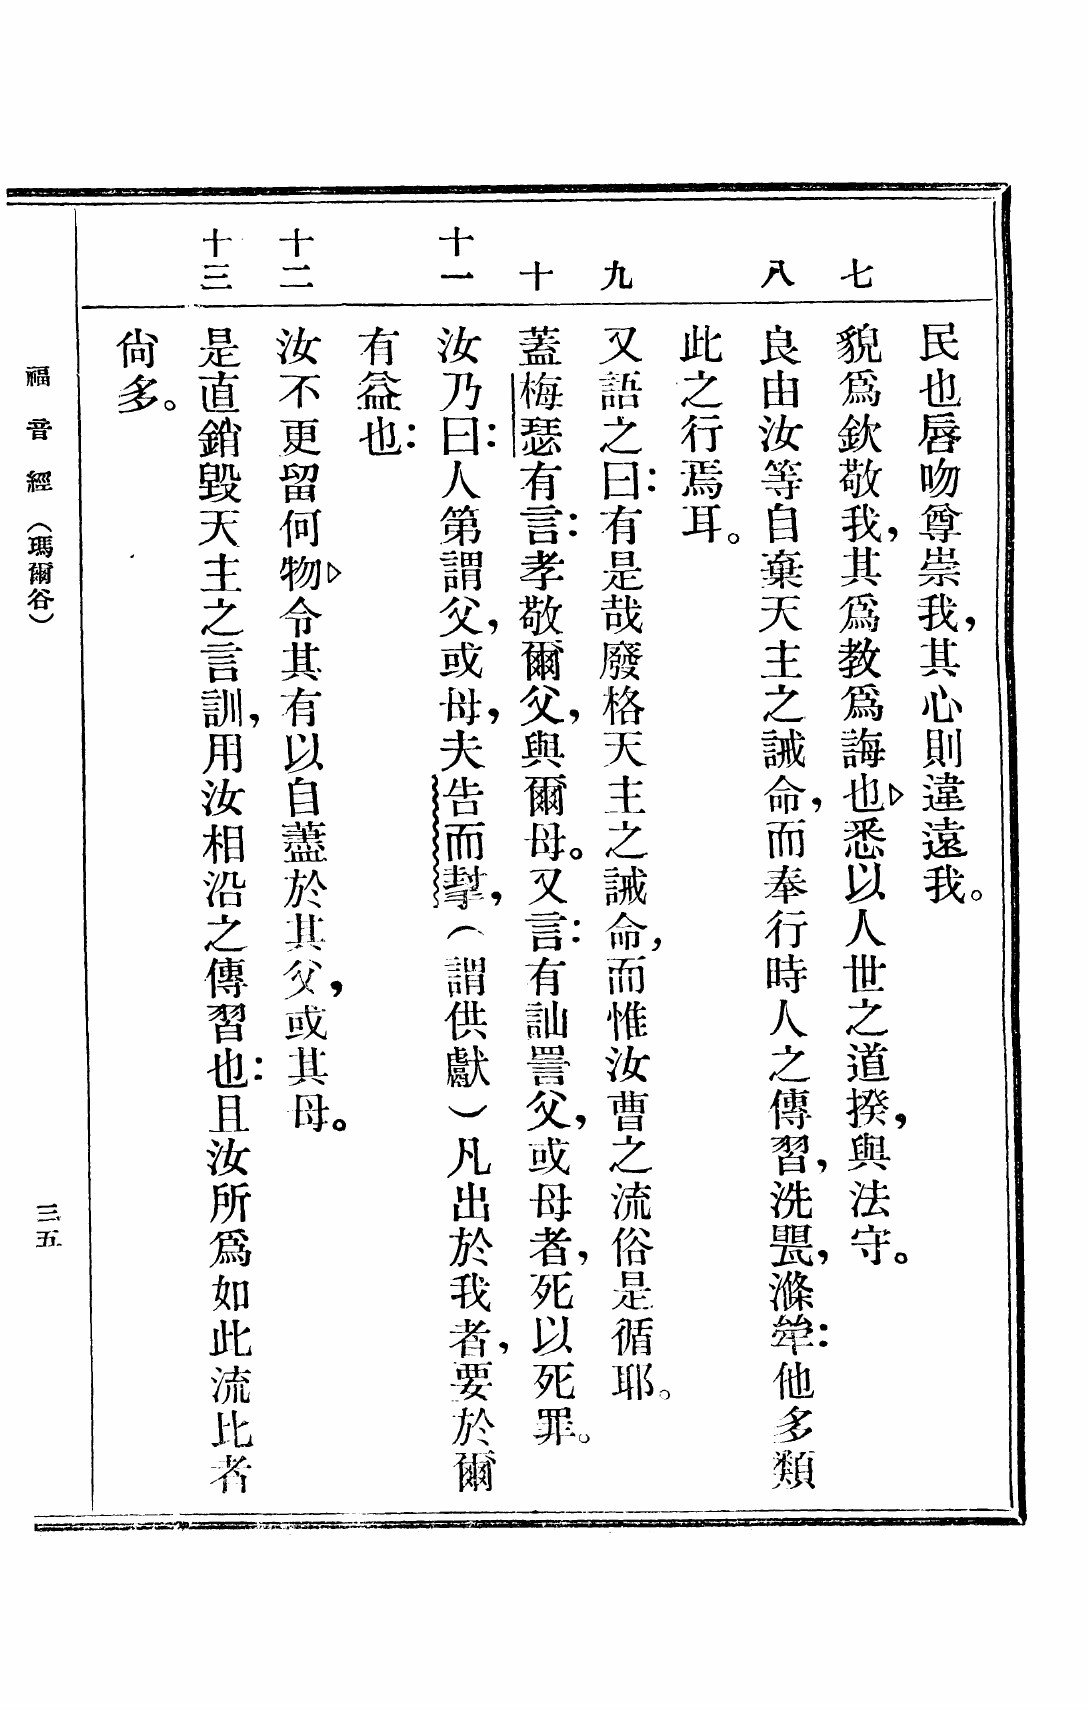 民也唇吻尊崇我，其心則違遠我。
七 貌爲欽敬我，其爲教爲誨也▷悉以人世之道揆，與法守。
八 良由汝等自棄天主之誡命，而奉行時人之傳習，洗罋，滌斝：他多類
此之行焉耳。
九 又語之曰：有是哉廢格天主之誡命，而惟汝曹之流俗是循耶。
十 蓋梅瑟有言：孝敬爾父，與爾母。又言：有訕詈父，或母者，死以死罪。
十一 汝乃曰：人第謂父，或母，夫告而揅，（謂供獻）凡出於我者，要於爾
有益也：
十二 汝不更留何物▷令其有以自藎於其父，或其母。
十三 是直銷毀天主之言訓，用汝相沿之傳習也：且汝所爲如此流比者
尙多。
福音經（瑪爾谷） 三五